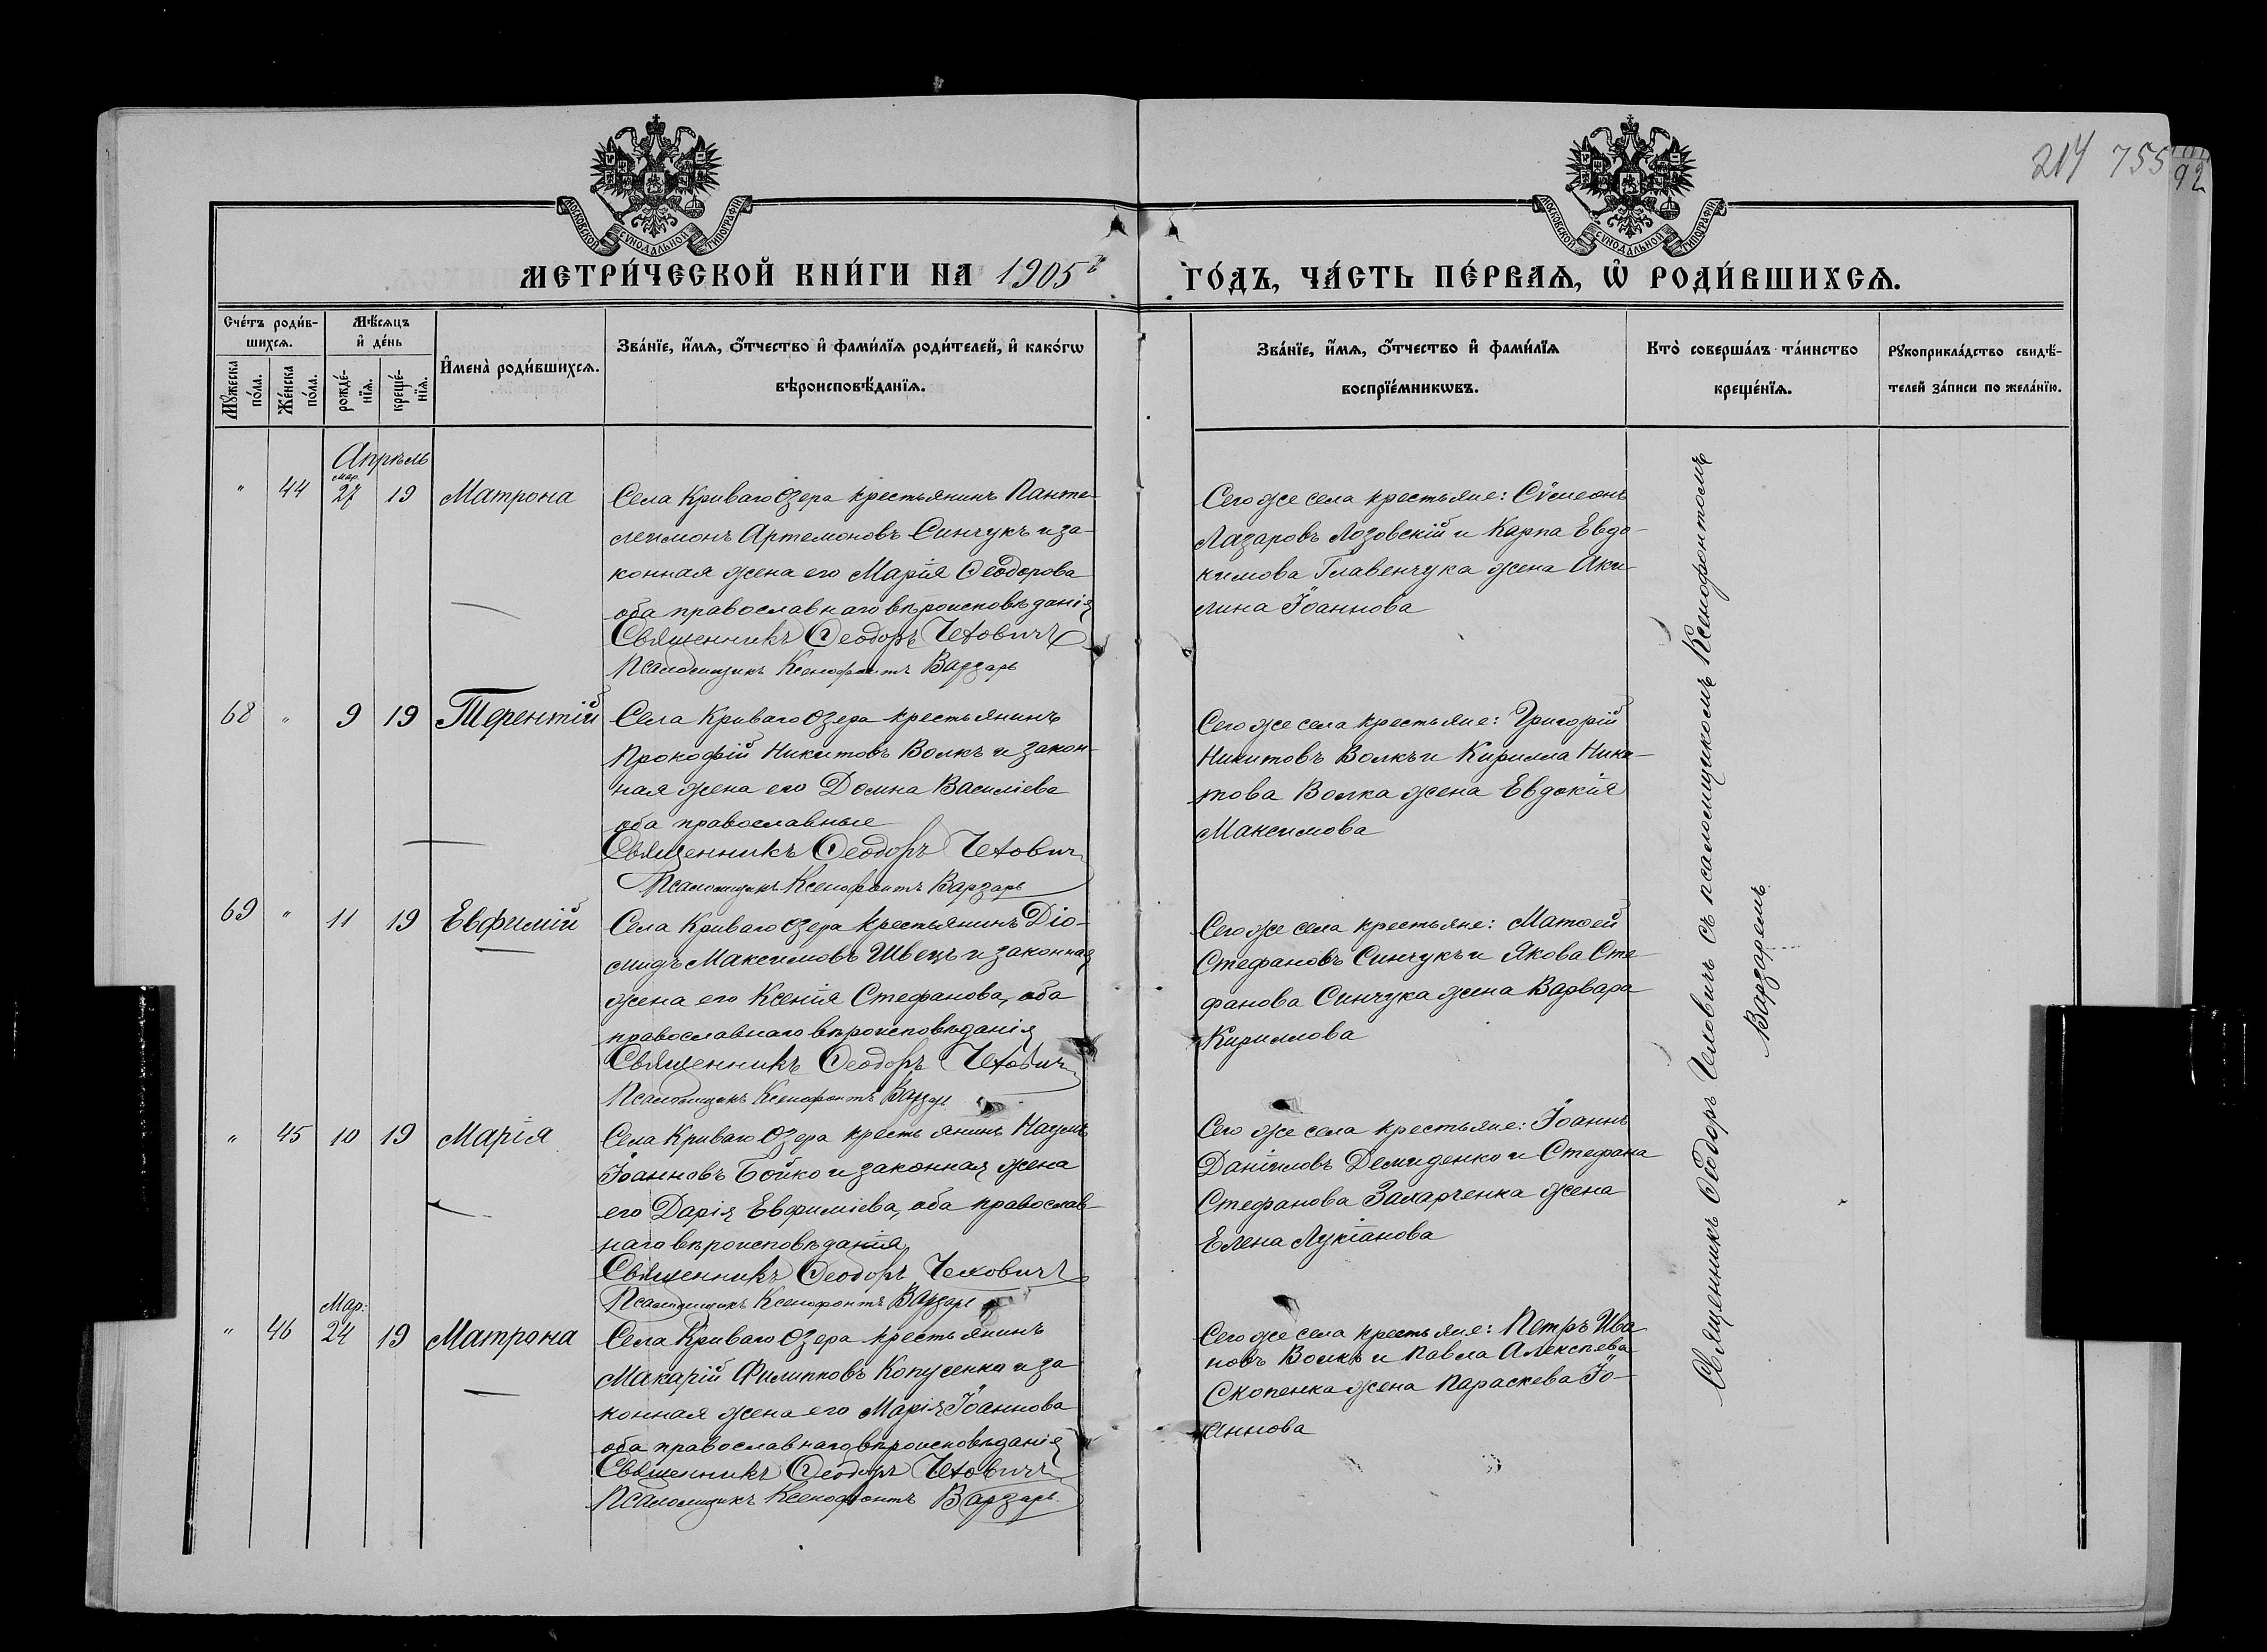 214 755 92
МОСКОВСКОЙ СѴНОДАЛЬНОЙ ТИПОГРАФІИ
МОСКОВСКОЙ СѴНОДАЛЬНОЙ ТИПОГРАФІИ
МЕТРИ́ЧЕСКОЙ КНИ́ГИ НА 1905й
ГО́ДЪ, ЧА́СТЬ ПЕ́РВАѦ, Ѡ҆ РОДИ́ВШИХСѦ.
Сче́тъ роди́в-
шихсѧ.
Мꙋжеска по́ла.
Же́нска по́ла.
Мѣ́сѧцъ
и҆ де́нь
рожде́-
нїѧ.
креще́-
нїѧ.
И҆мена̀ роди́вшихсѧ.
Зва́нїе, и҆́мѧ, ѻ҆́тчество и҆ фами́лїѧ роди́телей, и҆ како́гѡ
вѣроисповѣ́данїѧ.
Зва́нїе, и҆́мѧ, ѻ҆́тчество и҆ фами́лїѧ
воспрїе́мникѡвъ.
Кто̀ соверша́лъ та́инство
креще́нїѧ.
Рꙋкоприкла́дство свидѣ́-
телей за́писи по жела́нїю.
Апрѣль
" 44 мар. 27 19 Матрона
Села Криваго Озера крестьянинъ Панте-
леимонъ Артемоновъ Синчукъ и за-
конная жена его Марія Ѳеодорова
оба православнаго вѣроисповѣданія
Священникъ Ѳеодоръ Чеховичъ
Псаломщикъ Ксенофонтъ Варзарь
Сего же села крестьяне: Сѵмеонъ
Лазаровъ Лозовскій и Карпа Евдо-
кимова Главенчука жена Аки-
лина Іоаннова
68 " 9 19 Терентій
Села Криваго Озера крестьянинъ
Прокофій Никитовъ Волкъ и закон-
ная жена его Домна Василіева
оба православные
Священникъ Ѳеодоръ Чеховичъ
Псаломщикъ Ксенофонтъ Варзарь
Сего же села крестьяне: Григорій
Никитовъ Волкъ и Кирилла Ники-
това Волка жена Евдокія
Максимова
69 " 11 19 Евфимій
Села Криваго Озера крестьянинъ Діо-
мидъ Максимовъ Швецъ и законная
жена его Ксенія Стефанова, оба
православнаго вѣроисповѣданія
Священникъ Ѳеодоръ Чеховичъ
Псаломщикъ Ксенофонтъ Варзарь
Сего же села крестьяне: Матѳей
Стефановъ Синчукъ и Якова Сте-
фанова Синчука жена Варвара
Кириллова
" 45 10 19 Марія
Села Криваго Озера крестьянинъ Наумъ
Іоанновъ Бойко и законная жена
его Дарія Евфиміева, оба православ-
наго вѣроисповѣданія
Священникъ Ѳеодоръ Чеховичъ
Псаломщикъ Ксенофонтъ Варзарь
Сего же села крестьяне: Іоаннъ
Даніиловъ Демиденко и Стефана
Стефанова Захарченка жена
Елена Лукіанова
" 46 Мар. 24 19 Матрона
Села Криваго Озера крестьянинъ
Макарій Филипповъ Копусенко и за
конная жена его Марія Іоаннова
оба православнаго вѣроисповѣданія
Священникъ Ѳеодоръ Чеховичъ
Псаломщикъ Ксенофонтъ Варзарь
Сего же села крестьяне: Петръ Ива
новъ Волкъ и Павла Алексѣева
Скопенка жена Параскева Іо-
аннова
Священникъ Ѳеодоръ Чеховичъ съ псаломщикомъ Ксенофонтомъ
Варзаремъ